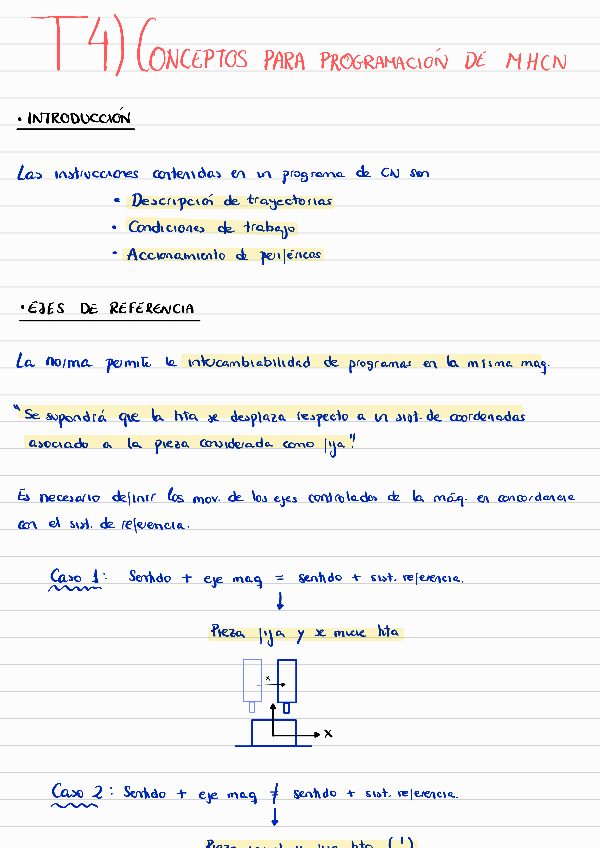 T4) CONCEPTOS PARA PROGRAMACIÓN DE MHCN
• INTRODUCCIÓN
Las instrucciones contenidas en un programa de CN son
• Descripción de trayectorias
• Condiciones de trabajo
• Accionamiento de periféricos
• EJES DE REFERENCIA
La norma permite la intercambiabilidad de programas en la misma maq.
"Se supondrá que la hta se desplaza respecto a un sist. de coordenadas
asociado a la pieza considerada como fija"
Es necesario definir los mov. de los ejes controlados de la máq. en concordancia
con el sist. de referencia.
Caso 1: Sentido + eje maq = sentido + sist. referencia.
↓
Pieza fija y se mueve hta
x
X
Caso 2: Sentido + eje maq ≠ sentido + sist. referencia.
↓
Pieza hta (')